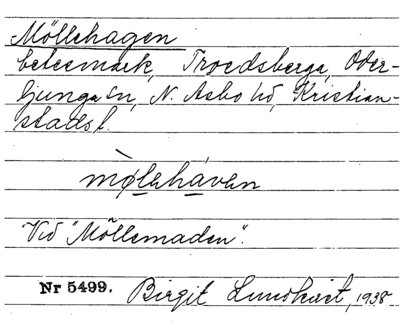 Möllehagen
betesmark, Troedsberga, Oder-
ljunga sn, N. Åsbo hd, Kristian-
stads l.
mø̀leháven
Vid "Möllemaden".
Nr 5499. Birgit Lundkvist, 1938